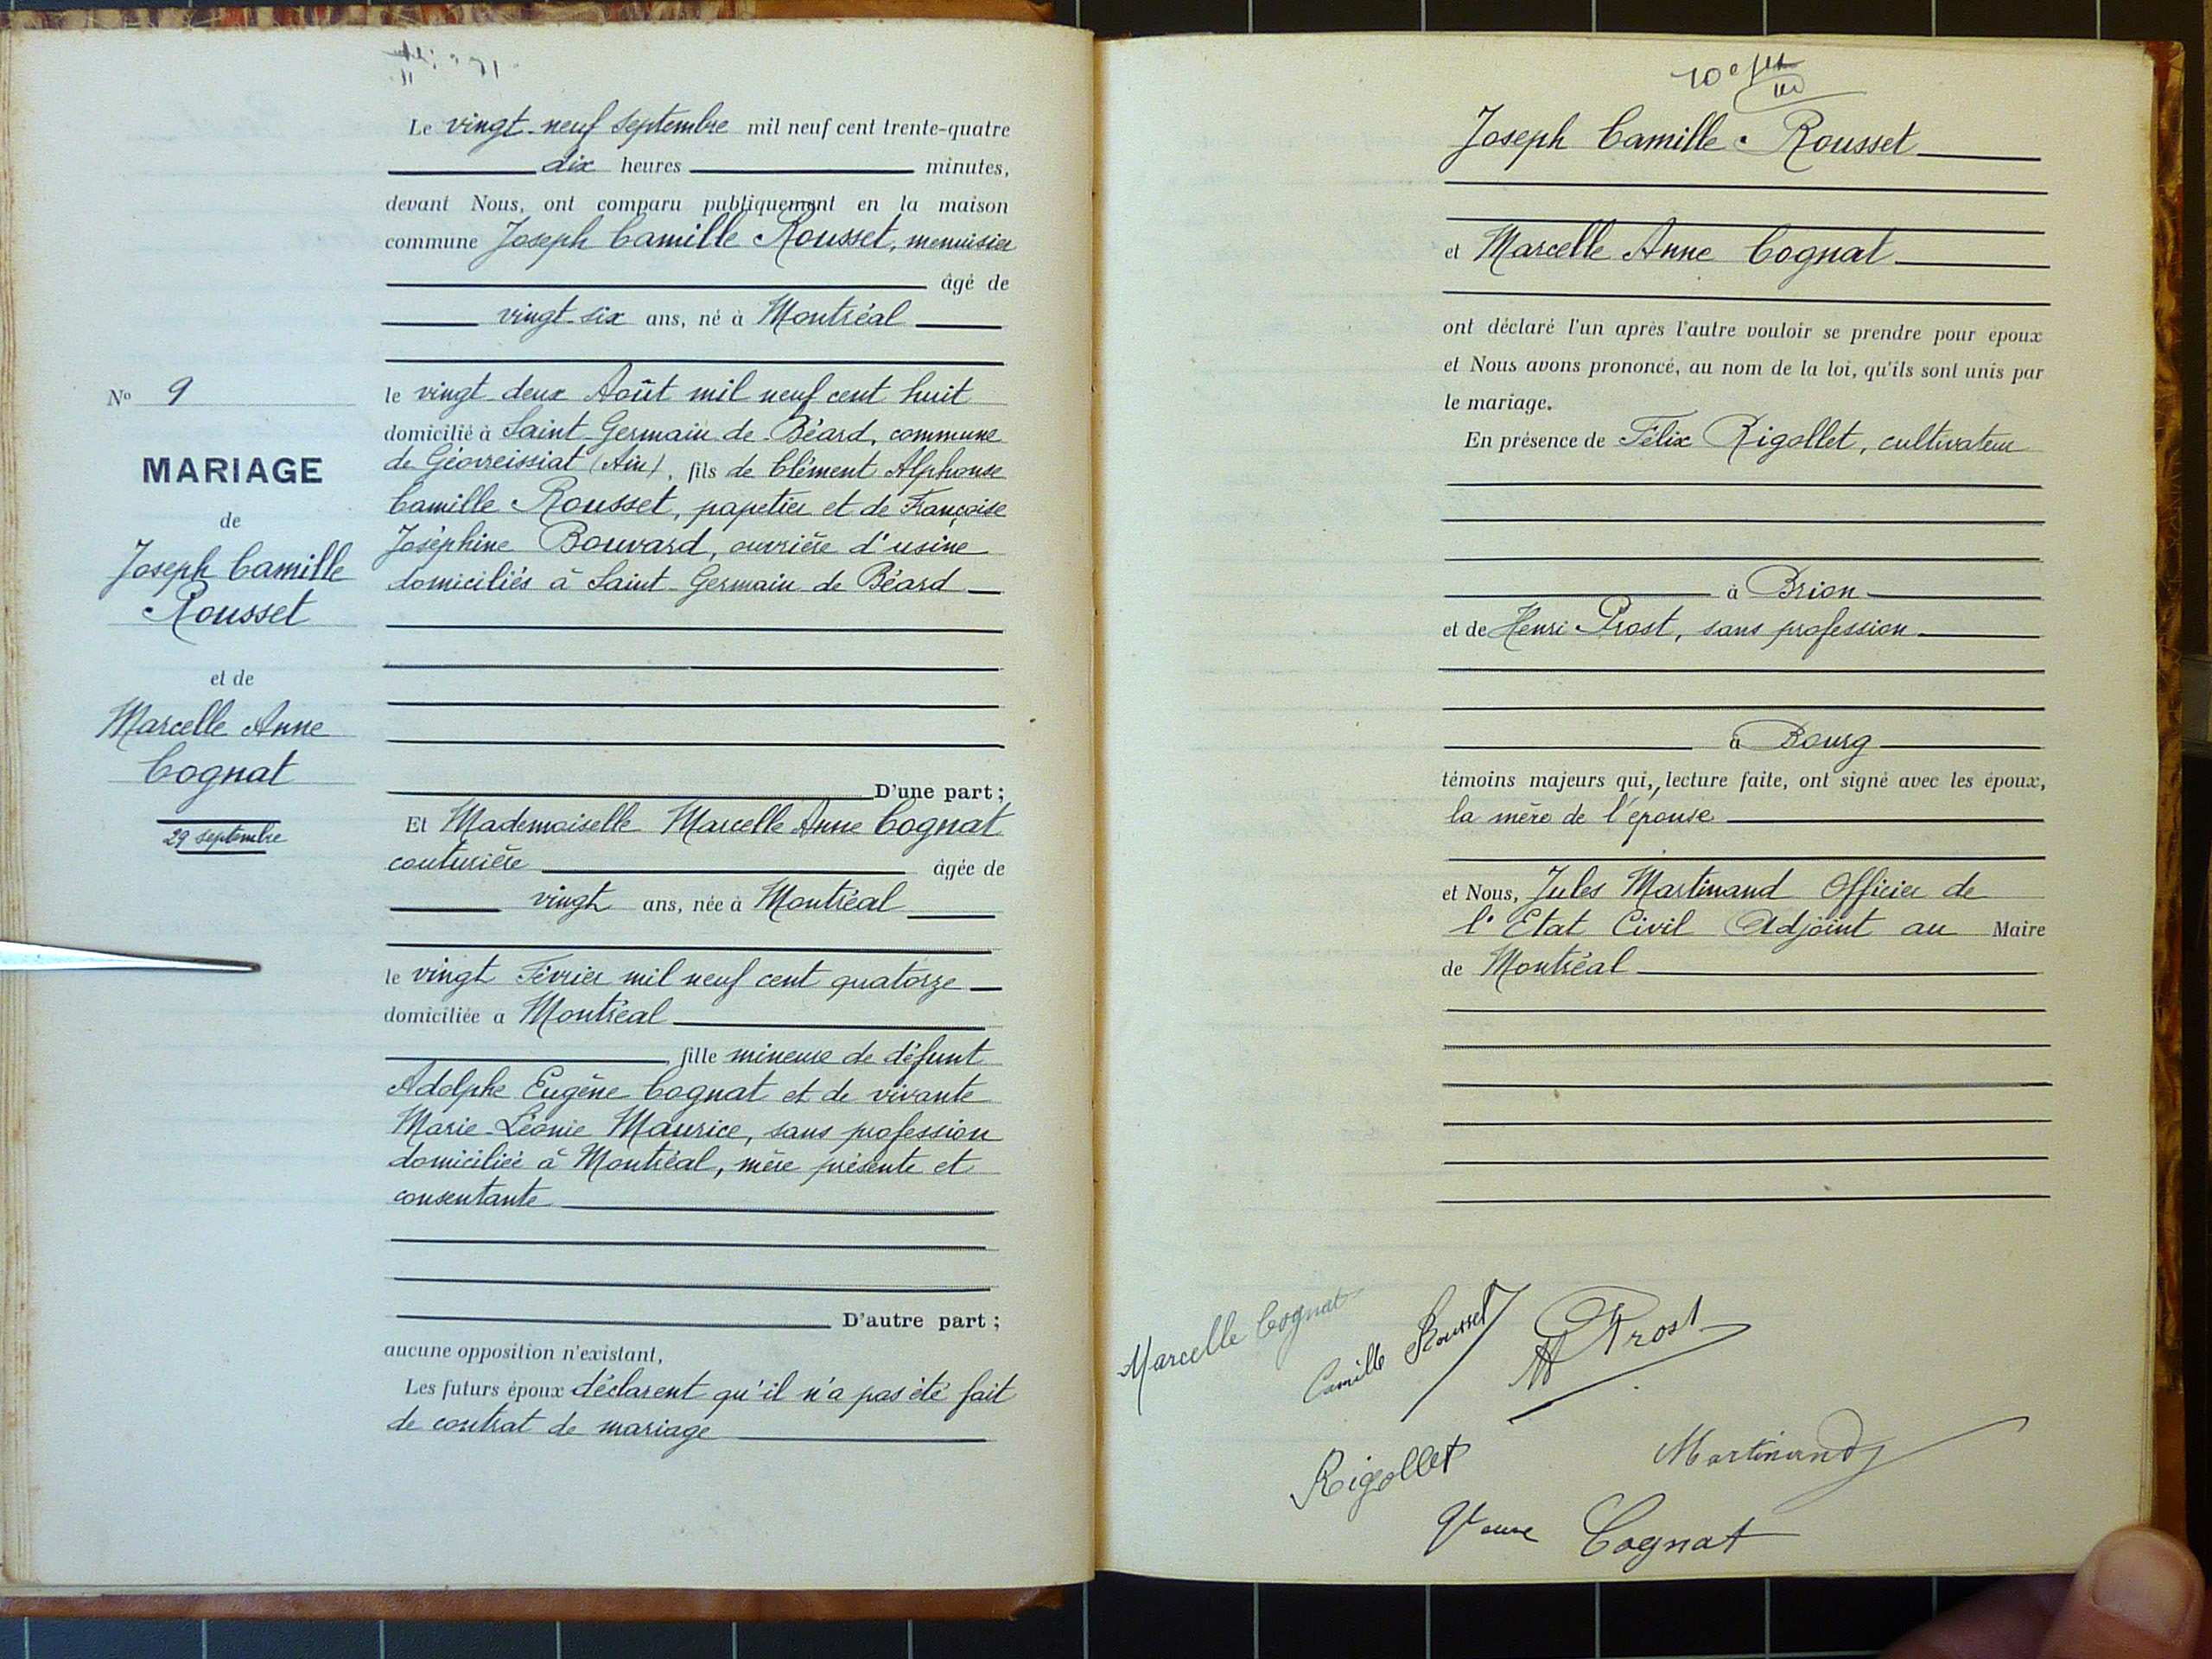 Le vingt-neuf Septembre mil neuf cent trente-quatre
dix heures minutes,
devant Nous, ont comparu publiquement en la maison
commune Joseph Camille Rousset, menuisier
âgé de
vingt-six ans, né à Montréal
le vingt deux Août mil neuf cent huit
domicilié à Saint-Germain de Béard, commune
de Géovreissiat (Ain), fils de Clément Alphonse
Camille Rousset, papetier et de Françoise
Joséphine Bouvard, ouvrière d'usine
domiciliés à Saint-Germain de Béard
D'une part ;
Et Mademoiselle Marcelle Anne Cognat
couturière âgée de
vingt ans, née à Montréal
le vingt Février mil neuf cent quatorze
domiciliée à Montréal
, fille mineure de défunt
Adolphe Eugène Cognat et de vivante
Marie-Léonie Maurice, sans profession
domiciliée à Montréal, mère présente et
consentante
D'autre part ;
aucune opposition n'existant,
Les futurs époux déclarent qu'il n'a pas été fait
de contrat de mariage
No 9
MARIAGE
de
Joseph Camille
Rousset
et de
Marcelle Anne
Cognat
29 septembre
10e
Joseph Camille Rousset
et Marcelle Anne Cognat
ont déclaré l'un après l'autre vouloir se prendre pour époux
et Nous avons prononcé, au nom de la loi, qu'ils sont unis par
le mariage.
En présence de Félix Rigollet, cultivateur
à Brion
et de Henri Prost, sans profession
à Bourg
témoins majeurs qui, lecture faite, ont signé avec les époux,
la mère de l'épouse
et Nous, Jules Martinand Officier de
l'Etat Civil Adjoint au Maire
de Montréal
Marcelle Cognat
Camille Rousset
Prost
Rigollet
Martinand
Cognat